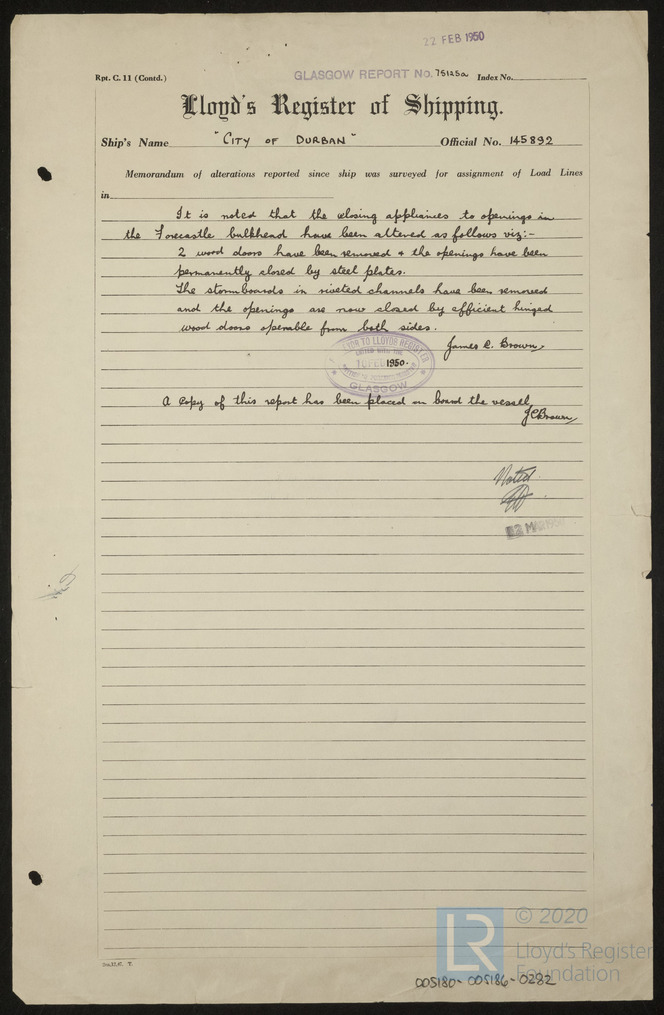 22 FEB 1950
Rpt. C. 11 (Contd.) GLASGOW REPORT No. 75125a Index No.
Lloyd's Register of Shipping.
Ship's Name "CITY OF DURBAN" Official No. 145892
Memorandum of alterations reported since ship was surveyed for assignment of Load Lines
in
It is noted that the closing appliances to openings in
the Forecastle bulkhead have been altered as follows viz:-
2 wood doors have been removed & the openings have been
permanently closed by steel plates.
The stormboards in riveted channels have been removed
and the openings are now closed by efficient hinged
wood doors operable from both sides.
James C. Brown.
TO LLOYDS REGISTER
UNITED WITH THE
10 FEB 1950.
GLASGOW
A copy of this report has been placed on board the vessel.
JCBrown
Noted
MAR 1950
© 2020
LR
Lloyd's Register
Foundation
005180-005186-0282